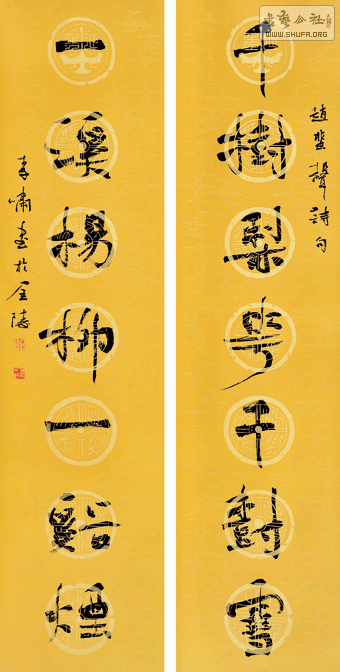 書藝公社
WWW.SHUFA.ORG
趙聲詩句
千樹梨花千尌雪
一溪楊柳一谿煙
李嘯書於金陵